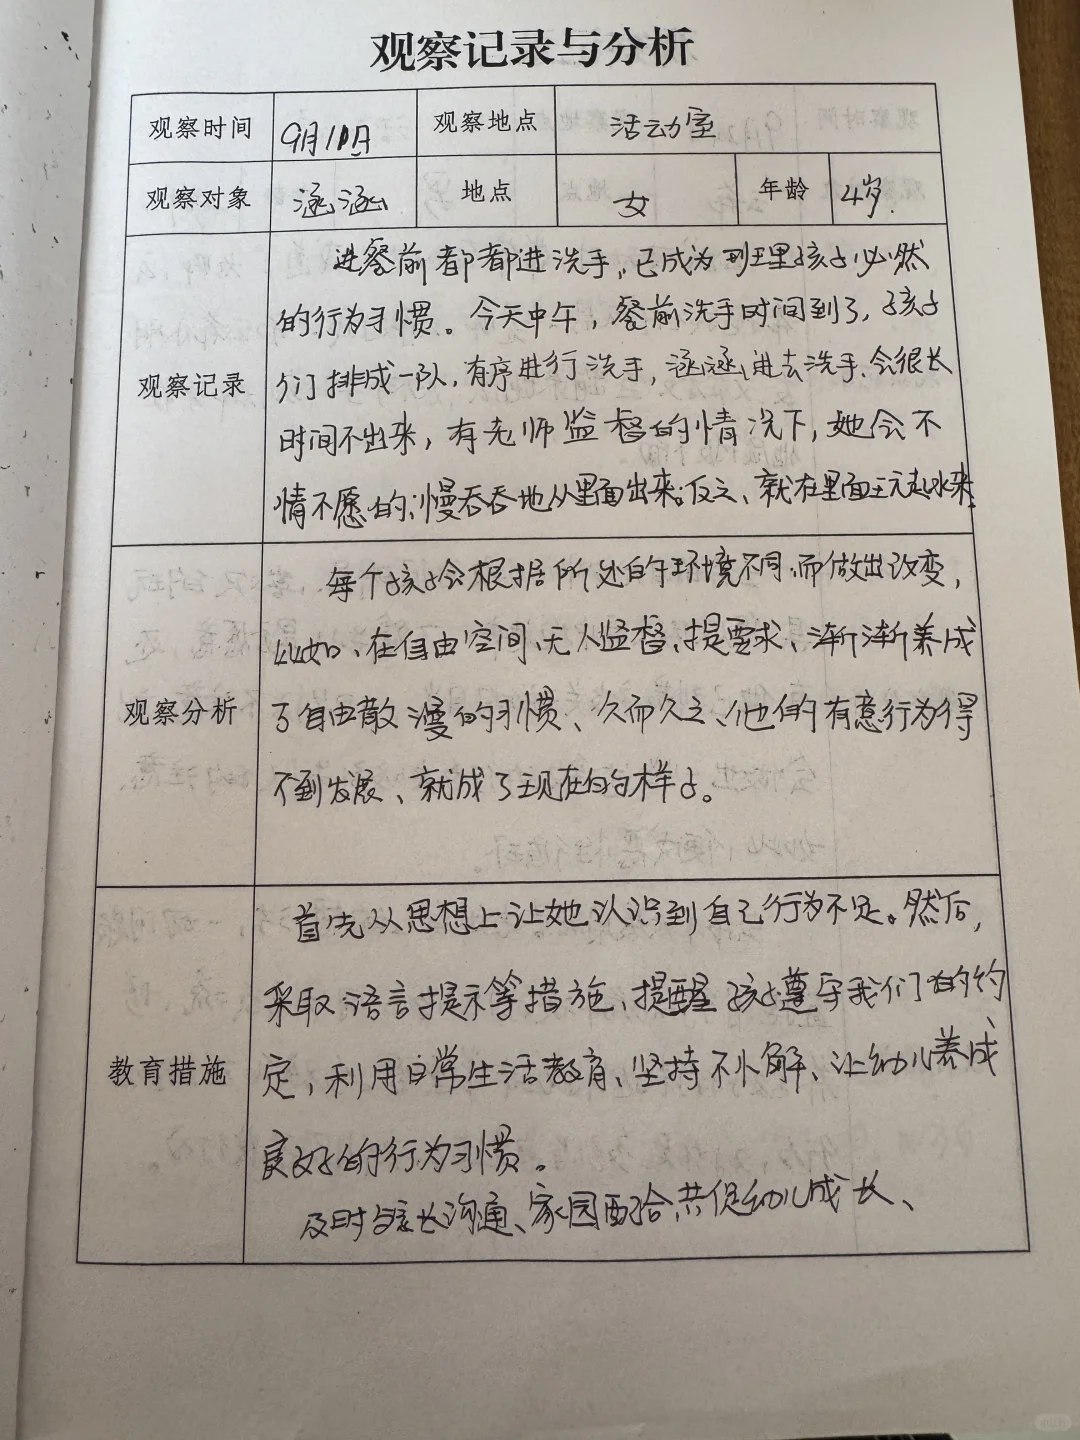 观察记录与分析
观察时间 9月10日 观察地点 活动室
观察对象 涵涵 地点 女 年龄 4岁.
进餐前都都进洗手,已成为班里孩子必然
的行为习惯。今天中午,餐前洗手时间到了,孩子
们排成一队,有序进行洗手,涵涵进去洗手、会很长
观察记录
时间不出来,有老师监督的情况下,她会不
情不愿的,慢吞吞地从里面出来;反之、就在里面玩起水来。
每个孩子会根据所处的环境不同,而做出改变,
比如、在自由空间、无人监督、提要求、渐渐养成
观察分析
了自由散漫的习惯、久而久之、他的有意行为得
不到发展、就成了现在的样子。
首先从思想上让她认识到自己行为不足。然后,
采取语言提示等措施、提醒孩子遵守我们的约
教育措施
定,利用日常生活教育、坚持不懈、让幼儿养成
良好的行为习惯。
及时与家长沟通、家园配合共促幼儿成长、